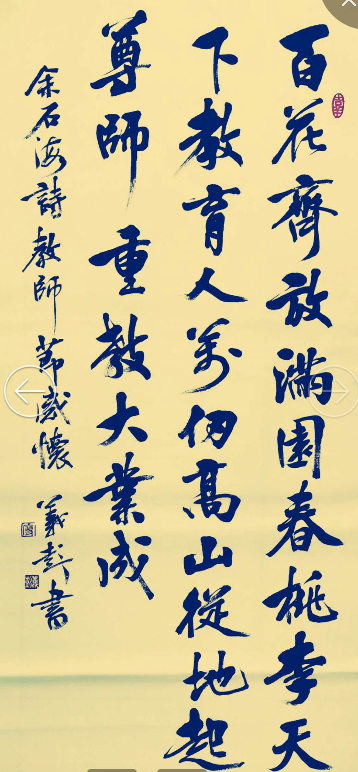 百花齊放滿園春桃李天
下教育人萬仞高山從地起
尊師重教大業成
余石海詩教師節感懷 義彭書